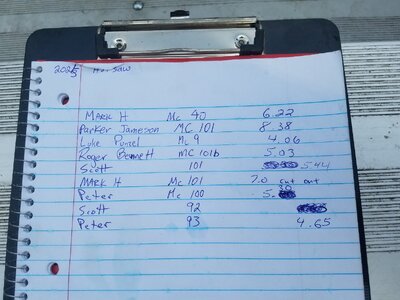 2025 Hot Saw
MARK H Mc 40 6.22
Parker Jameson MC 101 8.38
Luke Mc 9 4.06
Roger Bennett MC 101b 5.03
Scott 101 5.44
MARK H Mc 101 7.0 cut out
Peter Mc 100 5.30
Scott 92
Peter 93 4.65